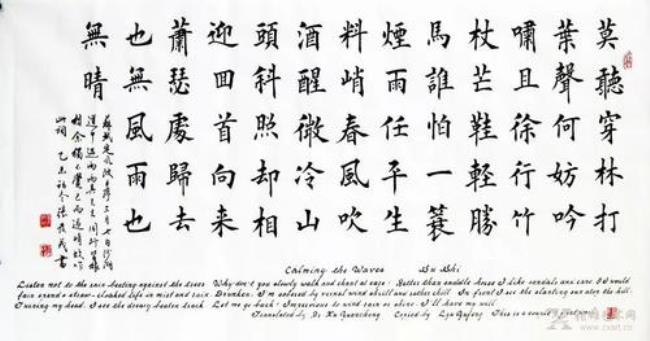 莫聽穿林打
葉聲何妨吟
嘯且徐行竹
杖芒鞋輕勝
馬誰怕一蓑
煙雨任平生
料峭春風吹
酒醒微冷山
頭斜照却相
迎回首向来
蕭瑟處歸去
也無風雨也
無晴
蘇軾定風波 三月七日沙湖
道中遇雨雨具先去同行皆狼
狽余獨不覺已而遂晴故作
此詞 乙未初冬 書
Calming the Waves Su Shi
Listen not to the rain beating against the trees Why don't you slowly walk and chant at ease Better than saddle horse I like sandals and cane O I would
fain spend a straw-cloaked life in mist and rain. Drunken, I'm sobered by vernal wind shrill and rather chill. In front I see the slanting sun atop the hill.
Turning my head, I see the dreary beaten track Let me go back! Impervious to wind rain or shine, I'll have my will
Translated by Xu Yuanchong Copied by